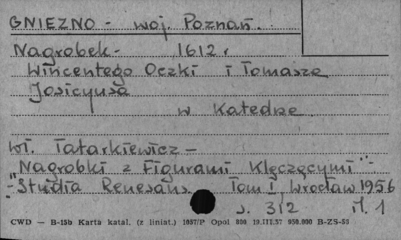 GNIEZNO - woj. Poznań.
Nagrobek - 1612 r
Wincentego Oczki i Tomasza
Josicyusa
w Katedze
Wł. Tatarkiewicz -
"Nagrobki z Figurami Klęczącymi" -
- "Studia Renesans. Tom I, Wrocław 1956
s. 312 il. 1
CWD — B-15b Karta katal. (z liniat.) 1687/P Opol 800 19.III.57 950.000 B-ZS-55